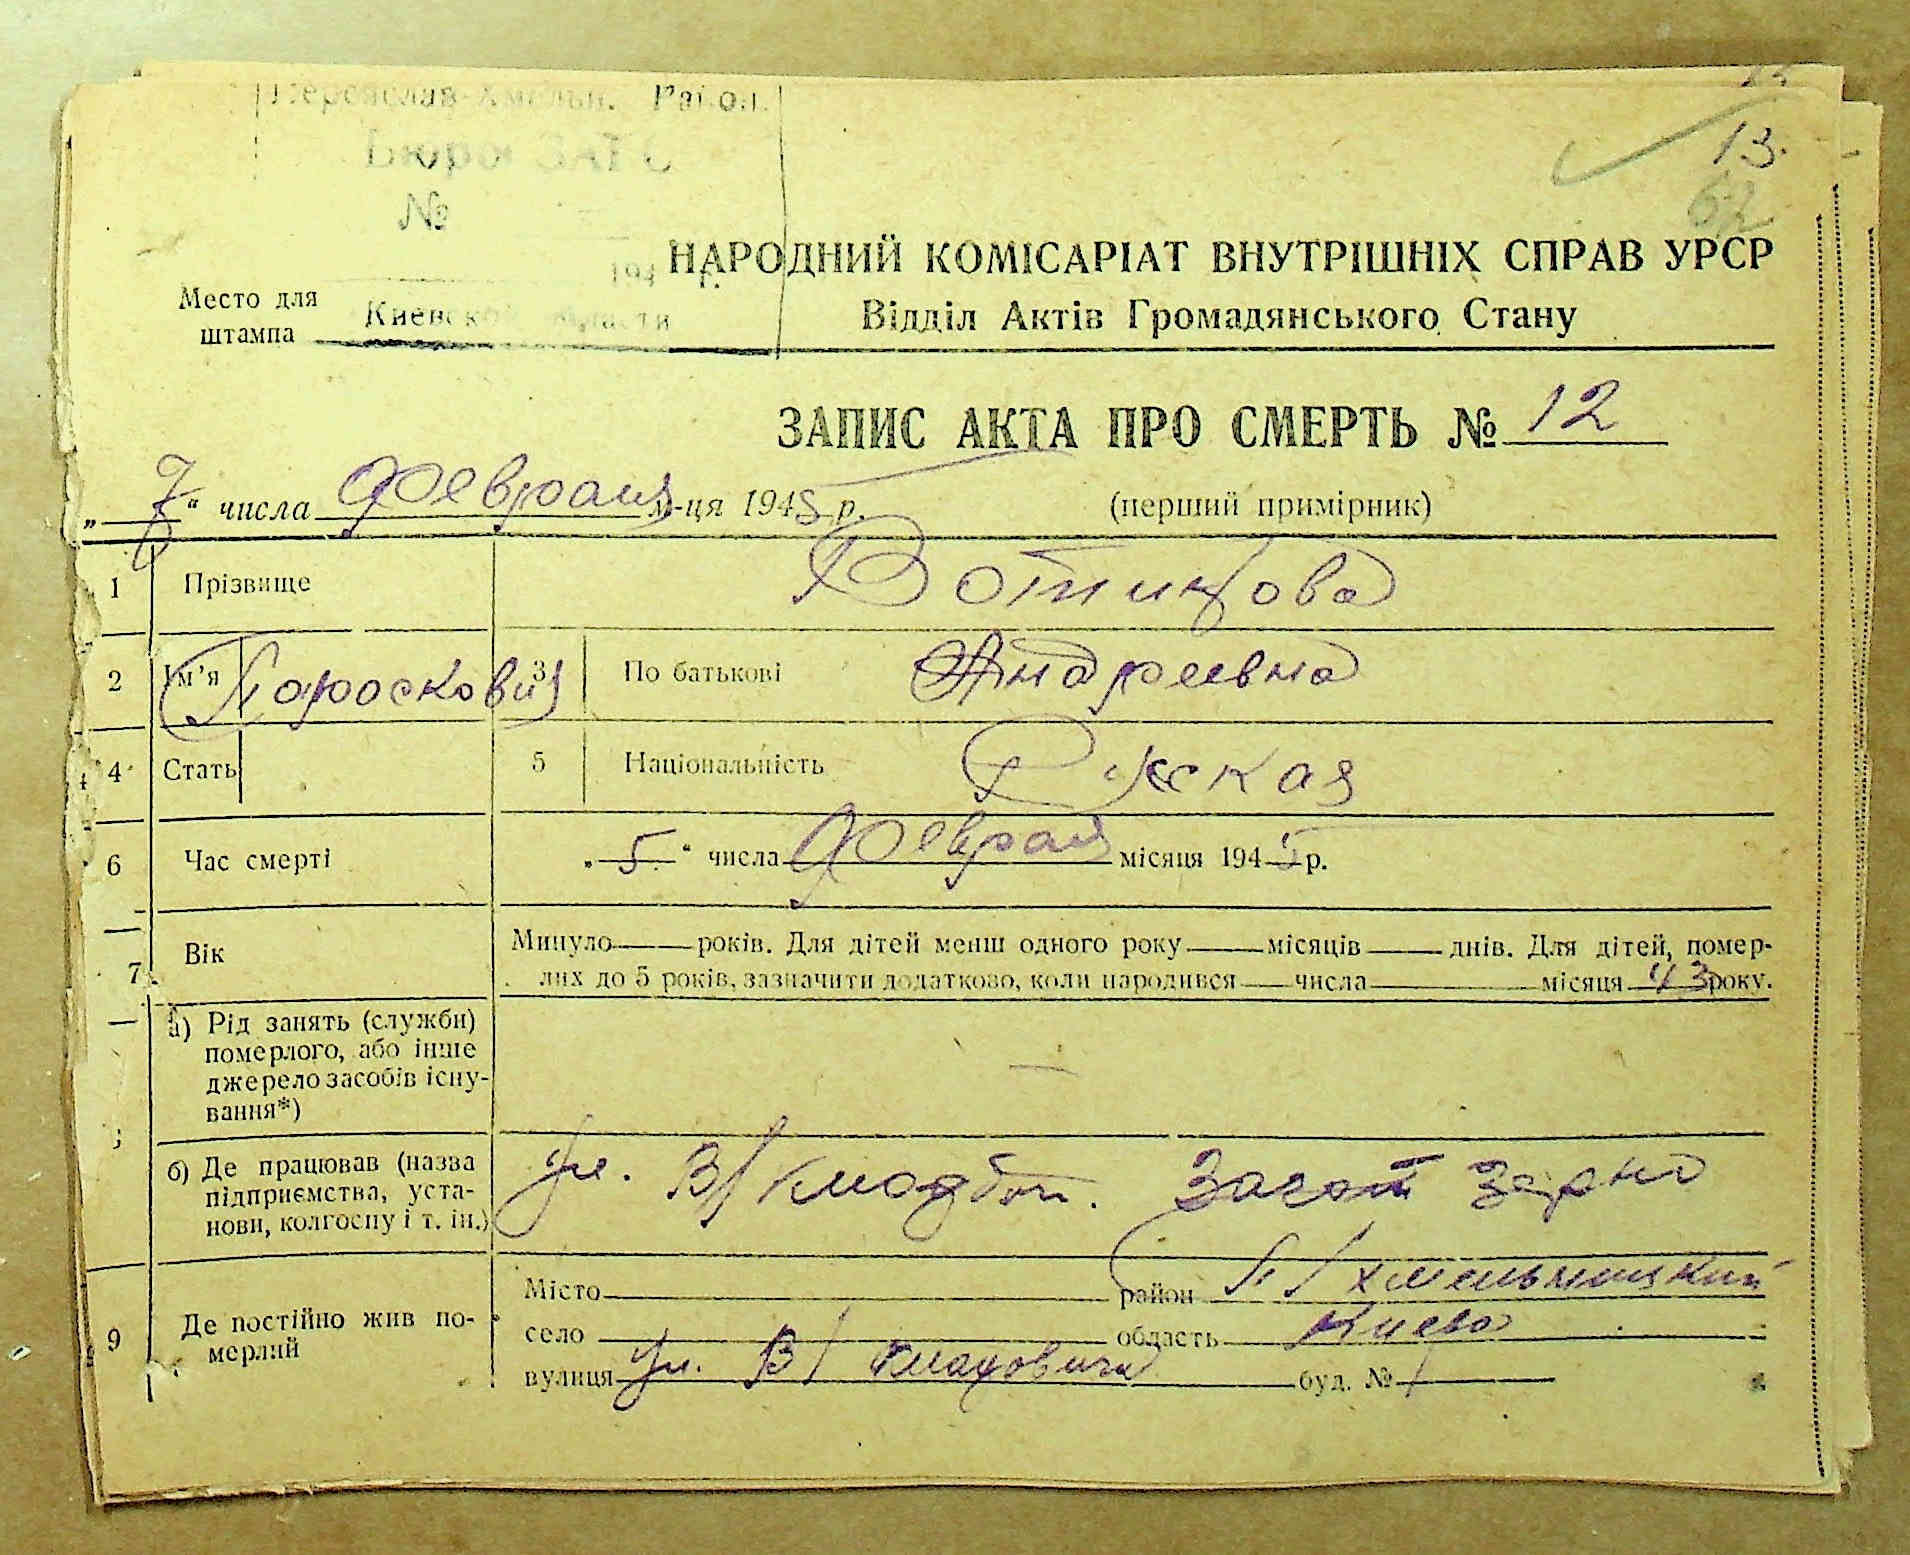 Переяслав-Хмельн. Район.
Бюро ЗАГС
№
194 г.
Киевской области
13.
62
Место для
штампа
НАРОДНИЙ КОМІСАРІАТ ВНУТРІШНІХ СПРАВ УРСР
Відділ Актів Громадянського Стану
ЗАПИС АКТА ПРО СМЕРТЬ № 12
„ 7 “ числа февраля м-ця 1945 р. (перший примірник)
1 Прізвище Вотинкова
2 Ім’я Парасковия 3 По батькові Андреевна
4 Стать 5 Національність Русская
6 Час смерті „ 5 “ числа февраля місяця 1945 р.
7 Вік Минуло років. Для дітей менш одного року місяців днів. Для дітей, помер-
лих до 5 років, зазначити додатково, коли народився числа місяця 43 року.
а) Рід занять (служби)
померлого, або інше
джерело засобів існу-
вання*)
б) Де працював (назва
підприємства, уста-
нови, колгоспу і т. ін.)
Загот зерно
9 Де постійно жив по-
мерлий
Місто район П/Хмельницкий
село область Киев
вулиця ул. В/ буд. №